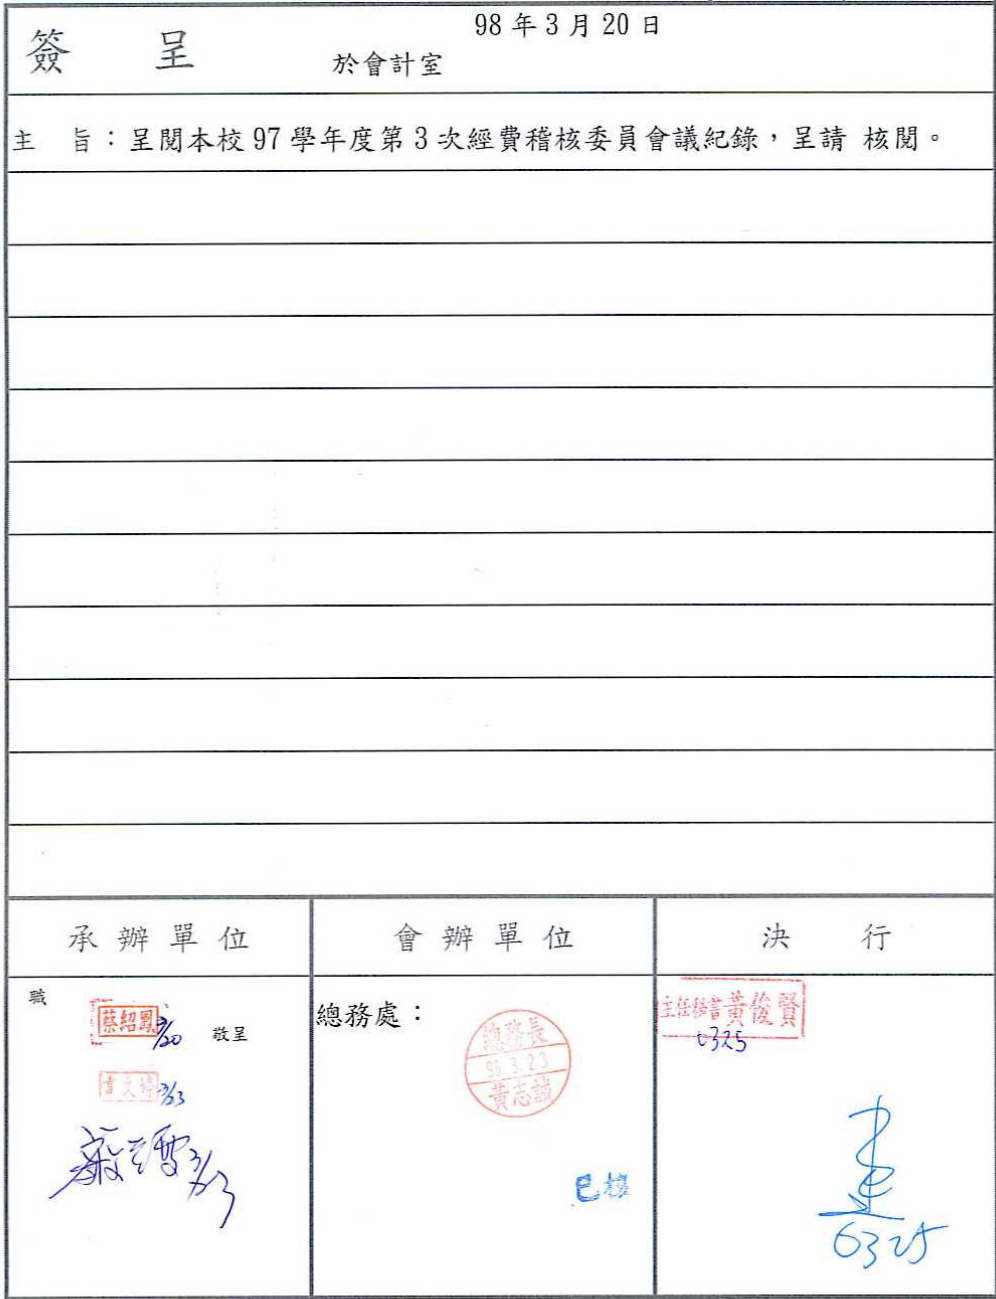 簽 呈
98 年 3 月 20 日
於會計室
主 旨：呈閱本校 97 學年度第 3 次經費稽核委員會議紀錄，呈請 核閱。
承 辦 單 位
會 辦 單 位
決 行
職
蔡紹鳳 3/20 敬呈
文婷 3/23
3/23
總務處：
總務長
98.3.23
黃志誠
已核
主任秘書黃俊賢
0325
0325